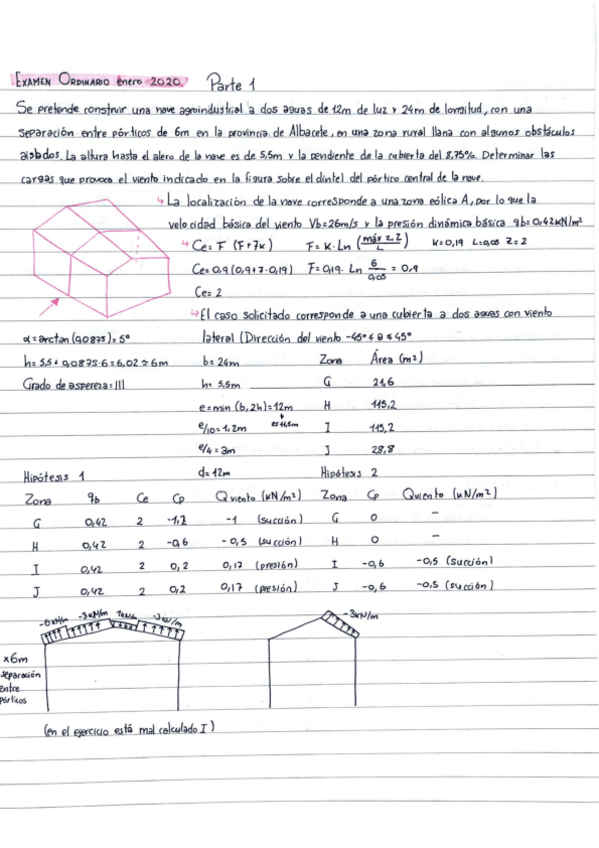 EXAMEN ORDINARIO enero 2020. Parte 1
Se pretende construir una nave agroindustrial a dos aguas de 12m de luz y 24m de longitud, con una
separación entre pórticos de 6m en la provincia de Albacete, en una zona rural llana con algunos obstáculos
aislados. La altura hasta el alero de la nave es de 5,5m y la pendiente de la cubierta del 8,75%. Determinar las
cargas que provoca el viento indicado en la figura sobre el dintel del pórtico central de la nave.
↳ La localización de la nave corresponde a una zona eólica A, por lo que la
velocidad básica del viento Vb=26m/s y la presión dinámica básica qb=0,42KN/m²
↳ Ce= F (F+7k) F= K·Ln (máx z,Z / L) K=0,19 L=0,05 Z=2
Ce=0,9 (0,9+7·0,19) F=0,19· Ln 6/0,05 = 0,9
Ce=2
↳ El caso solicitado corresponde a una cubierta a dos aguas con viento
α=arctan (0,0875)=5° lateral (Dirección del viento -45°≤θ≤45°
h=5,5+0,0875·6=6,02≈6m b=24m Zona Área (m²)
Grado de aspereza=III h= 5,5m G 21,6
e=min (b,2h)=12m H 115,2
e/10=1,2m es 11,5m I 115,2
e/4=3m J 28,8
Hipótesis 1 d=12m Hipótesis 2
Zona qb Ce Cp Qviento (KN/m²) Zona Cp Qviento (KN/m²)
G 0,42 2 -1,2 -1 (succión) G 0 -
H 0,42 2 -0,6 -0,5 (succión) H 0 -
I 0,42 2 0,2 0,17 (presión) I -0,6 -0,5 (succión)
J 0,42 2 0,2 0,17 (presión) J -0,6 -0,5 (succión)
-6KN/m -3KN/m 1KN/m -3KN/m -3KN/m
x6m
separación
entre
pórticos
(en el ejercicio está mal calculado I)